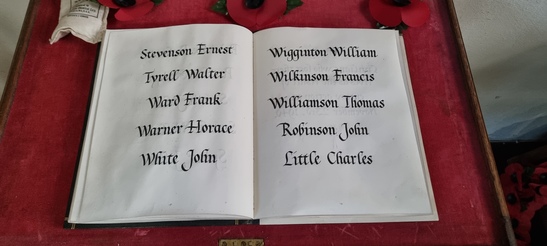 Stevenson Ernest
Tyrell Walter
Ward Frank
Warner Horace
White John
Wigginton William
Wilkinson Francis
Williamson Thomas
Robinson John
Little Charles